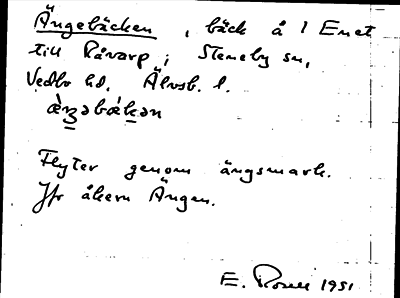 Ängebäcken, bäck å 1 Enet
till Råvarp; Steneby sn,
Vedbo hd. Älvsb. l.
æ̀ʒəbækən
Flyter genom ängsmark.
Jfr åkern Ängen.
E. 1951